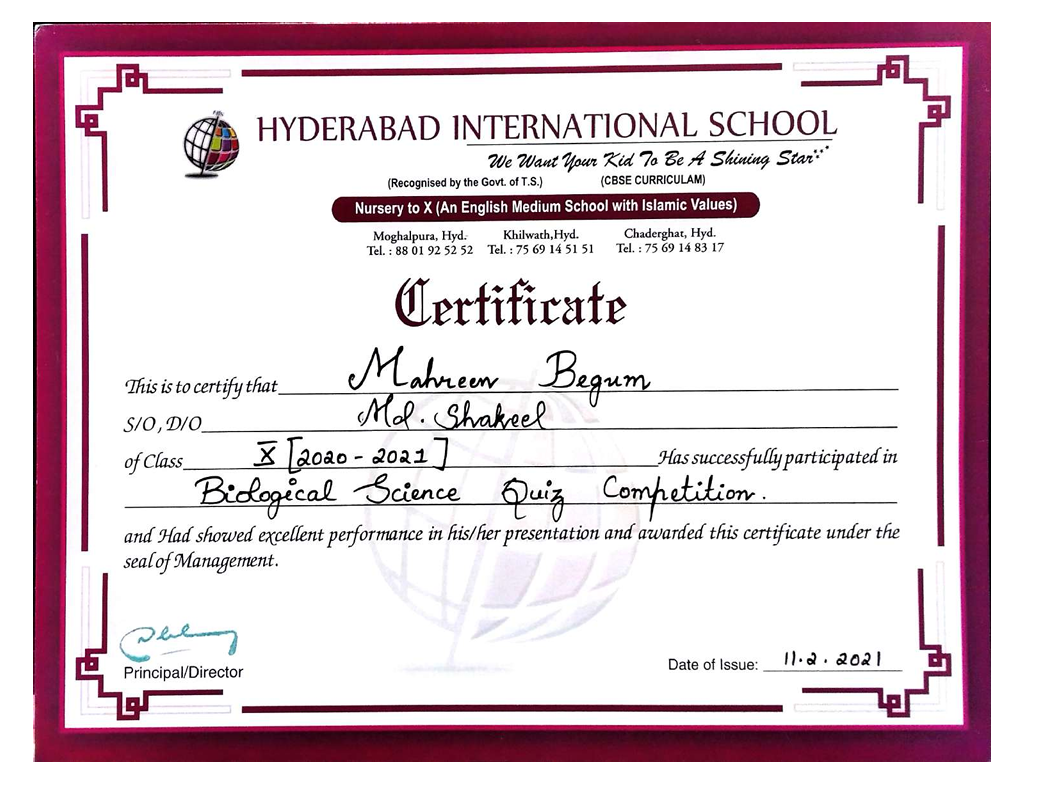 HYDERABAD INTERNATIONAL SCHOOL
We Want Your Kid To Be A Shining Star
(Recognised by the Govt. of T.S.) (CBSE CURRICULAM)
Nursery to X (An English Medium School with Islamic Values)
Moghalpura, Hyd. Khilwath,Hyd. Chaderghat, Hyd.
Tel. : 88 01 92 52 52 Tel. : 75 69 14 51 51 Tel. : 75 69 14 83 17
Certificate
This is to certify that Mahreen Begum
S/O, D/O Md. Shakeel
of Class X [2020 - 2021] Has successfully participated in
Biological Science Quiz Competition.
and Had showed excellent performance in his/her presentation and awarded this certificate under the
seal of Management.
Principal/Director
Date of Issue: 11.2.2021